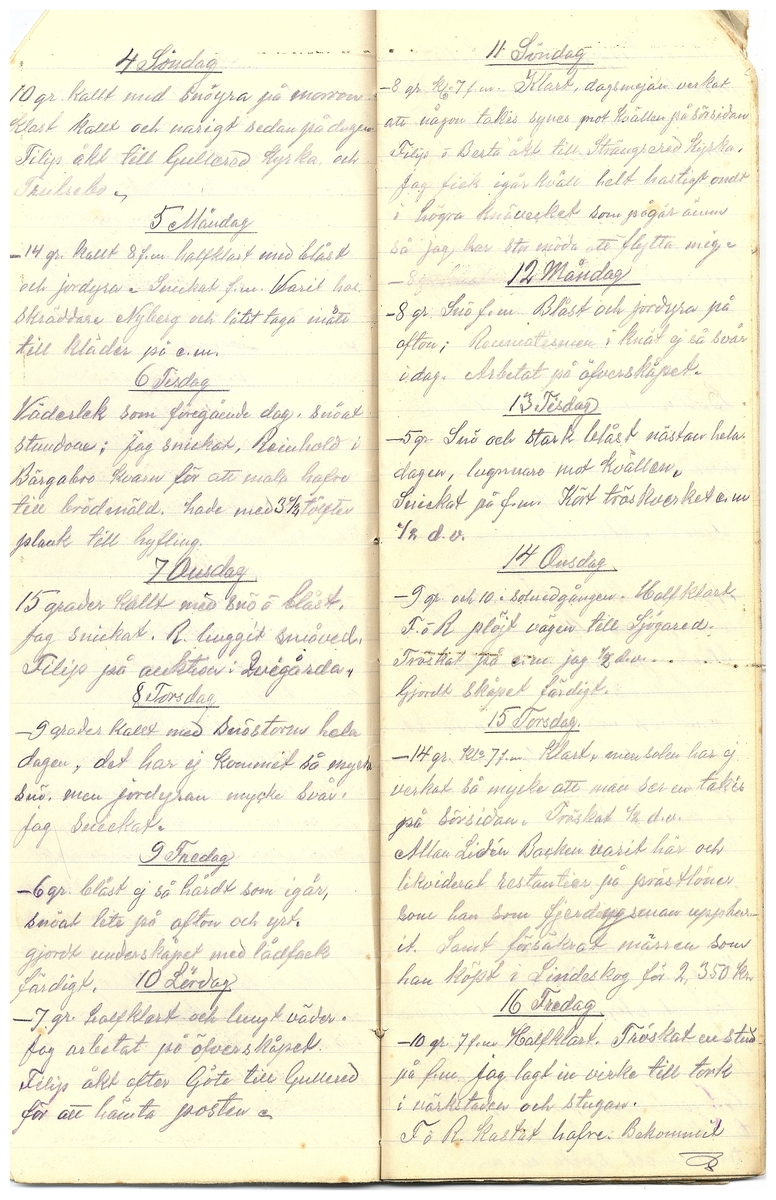 4 Söndag
10 gr. kallt med snöyra på morron
Klart kallt och narigt sedan på dagen
Filip åkt till Gullered Kyrka och
5 Måndag
-14 gr. kallt 8 f.m. halfklart med blåst
och jordyra. Snickat f.m. Varit hos
skräddare Nyberg och låtit taga mått
till kläder på e.m.
6 Tisdag
Väderlek som föregående dag. snöat
stundom; Jag snickat, Reinhold i
Bärgabro kvarn för att mala hafre
till brödmäld. hade med 3 1/2 tolfter
plank till hyfling.
7 Onsdag
15 grader kallt med snö o blåst.
Jag snickat. R. huggit småved.
Filip på auktion i Qvegårda.
8 Torsdag
-9 grader kallt med snöstorm hela
dagen, det har ej kommit så myck
snö. men jordyran mycke svår.
Jag snickat.
9 Fredag
-6 gr. blåst ej så hårdt som igår,
snöat lite på afton och yrt.
gjordt underskåpet med lådfack
färdigt. 10 Lördag
-7 gr. halfklart och lungt väder.
Jag arbetat på öfverskåpet.
Filip åkt efter Göte till Gullered
för att hämta posten
11 Söndag
-8 gr. kl. 7 f.m. Klart, dagsmejan verkat
att någon takis synes mot kvällen på sörsidan
Filip o Berta åkt till Strängsered Kyrka.
Jag fick igår kväll helt hastigt ondt
i högra knävecket som pågår ännu
så jag har stor möda att flytta mig.
12 Måndag
-8 gr. Snö f.m. Blåst och jordyra på
afton; Reumatismen i knät ej så svår
idag. Arbetat på öfverskåpet.
13 Tisdag
-5 gr. Snö och stark blåst nästan hela
dagen, lugnare mot kvällen.
Snickat på f.m. Kört tröskverket e.m
1/2 d.v.
14 Onsdag
-9 gr. och 10 i solnedgången. Halfklart
F. o R plöjt vägen till Sjögared.
Tröskat på e.m jag 1/2 d.v.
Gjordt skåpet färdigt.
15 Torsdag
-14 gr. Kl. 7 f.m. Klart, men solen har ej
verkat så mycke att man ser en takis
på sörsidan. Tröskat 1/2 d.v.
Allan Lidén Backen varit här och
likviderat restantier på prästlöner
som han som fjerdingsman uppbur-
it. Samt försäkrat märren som
han köpt i Lindeskog för 2,350 Kr.
16 Fredag
-10 gr. 7 f.m Halfklart. Tröskat en stund
på f.m. Jag lagt in virke till tork
i värkstaden och stugan.
F. o R. kastat hafre. Bekommit